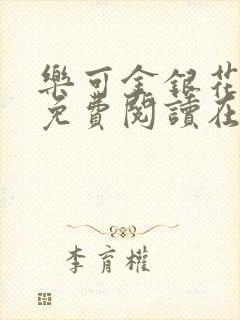 樂可金銀花
免費閱讀在
李育權